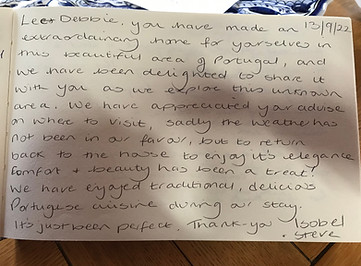 Lee+ Debbie, you have made an 13/9/22
extraordinary home for yourselves in
this beautiful area of Portugal, and
we have been delighted to share it
with you as we explore this unknown
area. We have appreciated your advise
on where to visit, sadly the weather has
not been in our favour, but to return
back to the house to enjoy it's elegance
comfort + beauty has been a treat!
We have enjoyed traditional, delicious
Portugese cuisine during our stay.
It's just been perfect. Thank-you Isobel
+ Steve